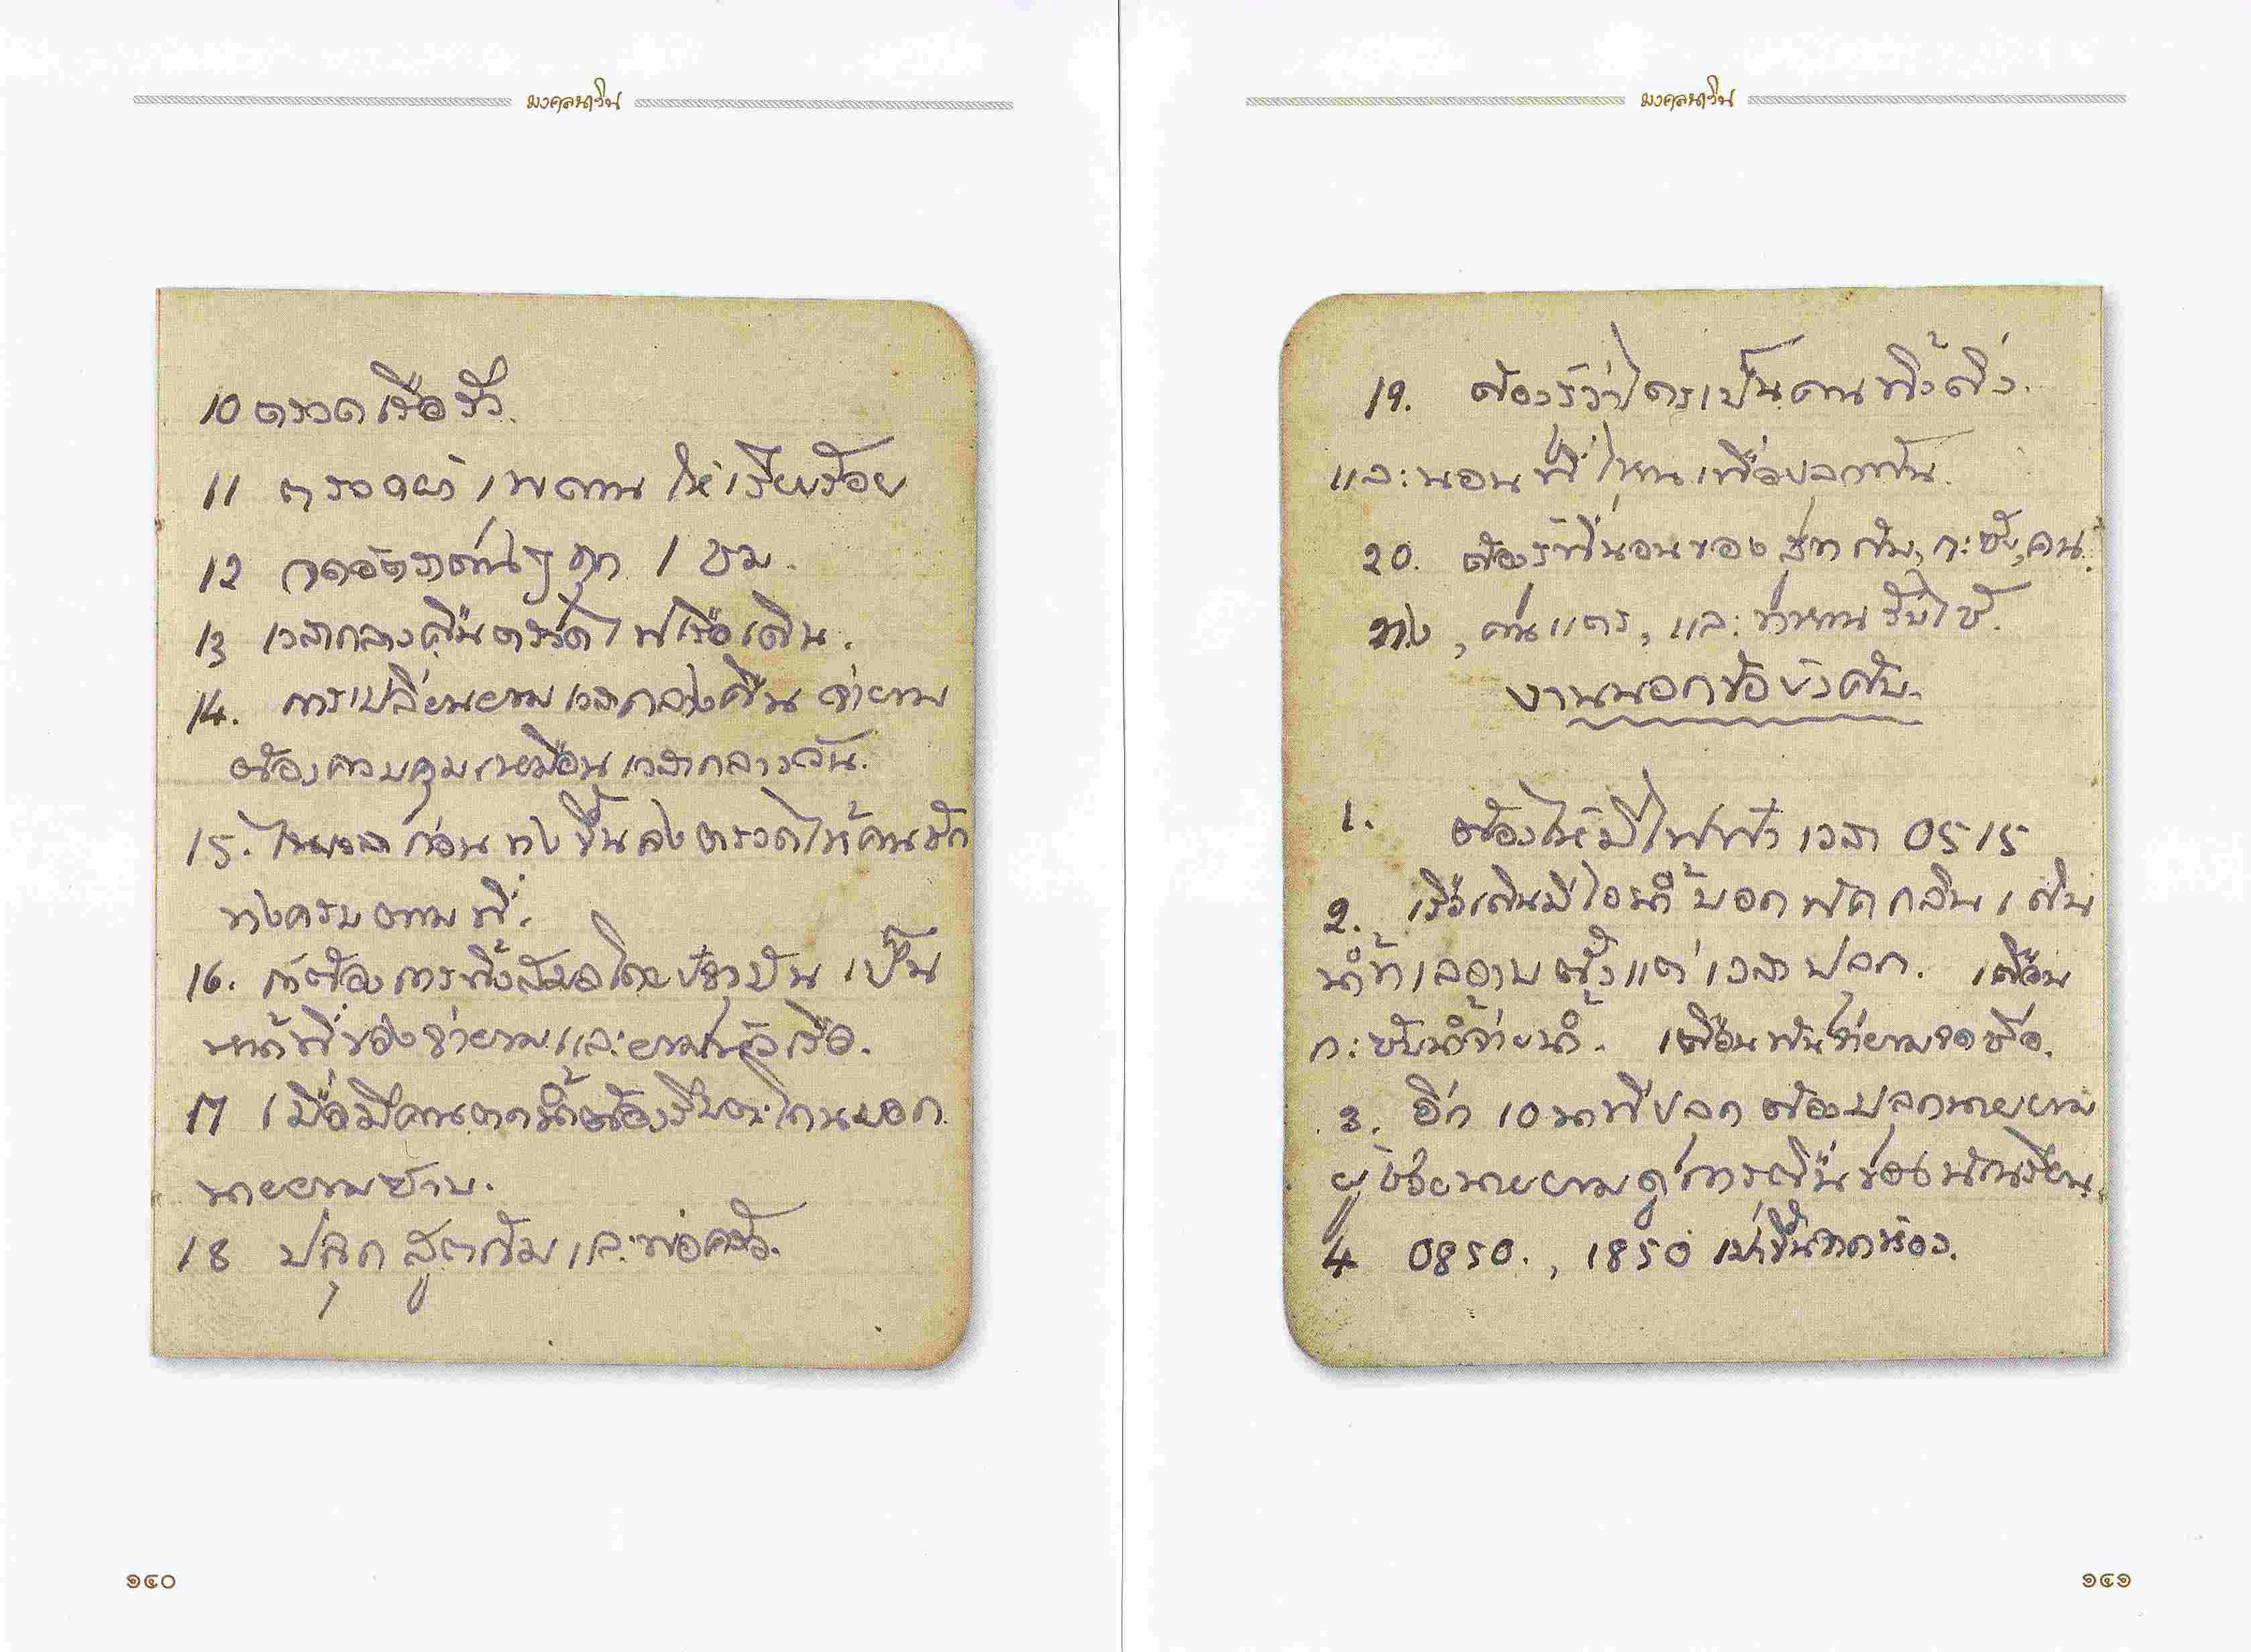 มงคลนาวิน
10 ตรวดเรือรั่ว.
11 ตรวดผ้าเพดาน ให้เรียบร้อย
12 จดอัตราต่างๆ ทุก 1 ชม.
13 เวลากลางคืนตรวดไฟเรือเดิน.
14. การเปลี่ยนยามเวลากลางคืน จ่ายาม
ต้องควบคุมเหมือนเวลากลางวัน.
15. ในเวลาก่อน ธงขึ้นลงตรวดให้คนชัก
ธงครบตามที่.
16. ถ้าต้องการทิ้งสมอโดย เป็น
หน้าที่ของจ่ายามและยามหัวเรือ.
17 เมื่อมีคนตกน้ำต้องรีบตะโกนบอก
นายยามทราบ.
18 ปลุก สูทกัม และพ่อครัว.
๑๔๐
มงคลนาวิน
19. ต้องรู้ว่าใครเป็นคนทิ้งดิ่ง.
และนอนที่ไหนเพื่อปลุกทัน.
20. ต้องรู้ที่นอนของ สูทกัม, กะซับ, คน
ธง, คนแตร, และทหารรับใช้.
งานนอกข้อบังคับ.
1. ต้องให้มีไฟฟ้า เวลา 0515
2. เรือเดินมีไอน้ำบอกพัคกลินเดิน
น้ำทเลอาบตั้งแต่เวลาปลุก. เตือน
กะซับน้ำจ่ายน้ำ. เตือนพันจ่ายามจดชื่อ.
3. อีก 10 นาทีปลุก ต้องปลุกนายยาม
ผู้ช่วยนายยามดูการตื่นของนักเรียน.
4 0850., 1850 เป่าขึ้นกดห้อง.
๑๔๑